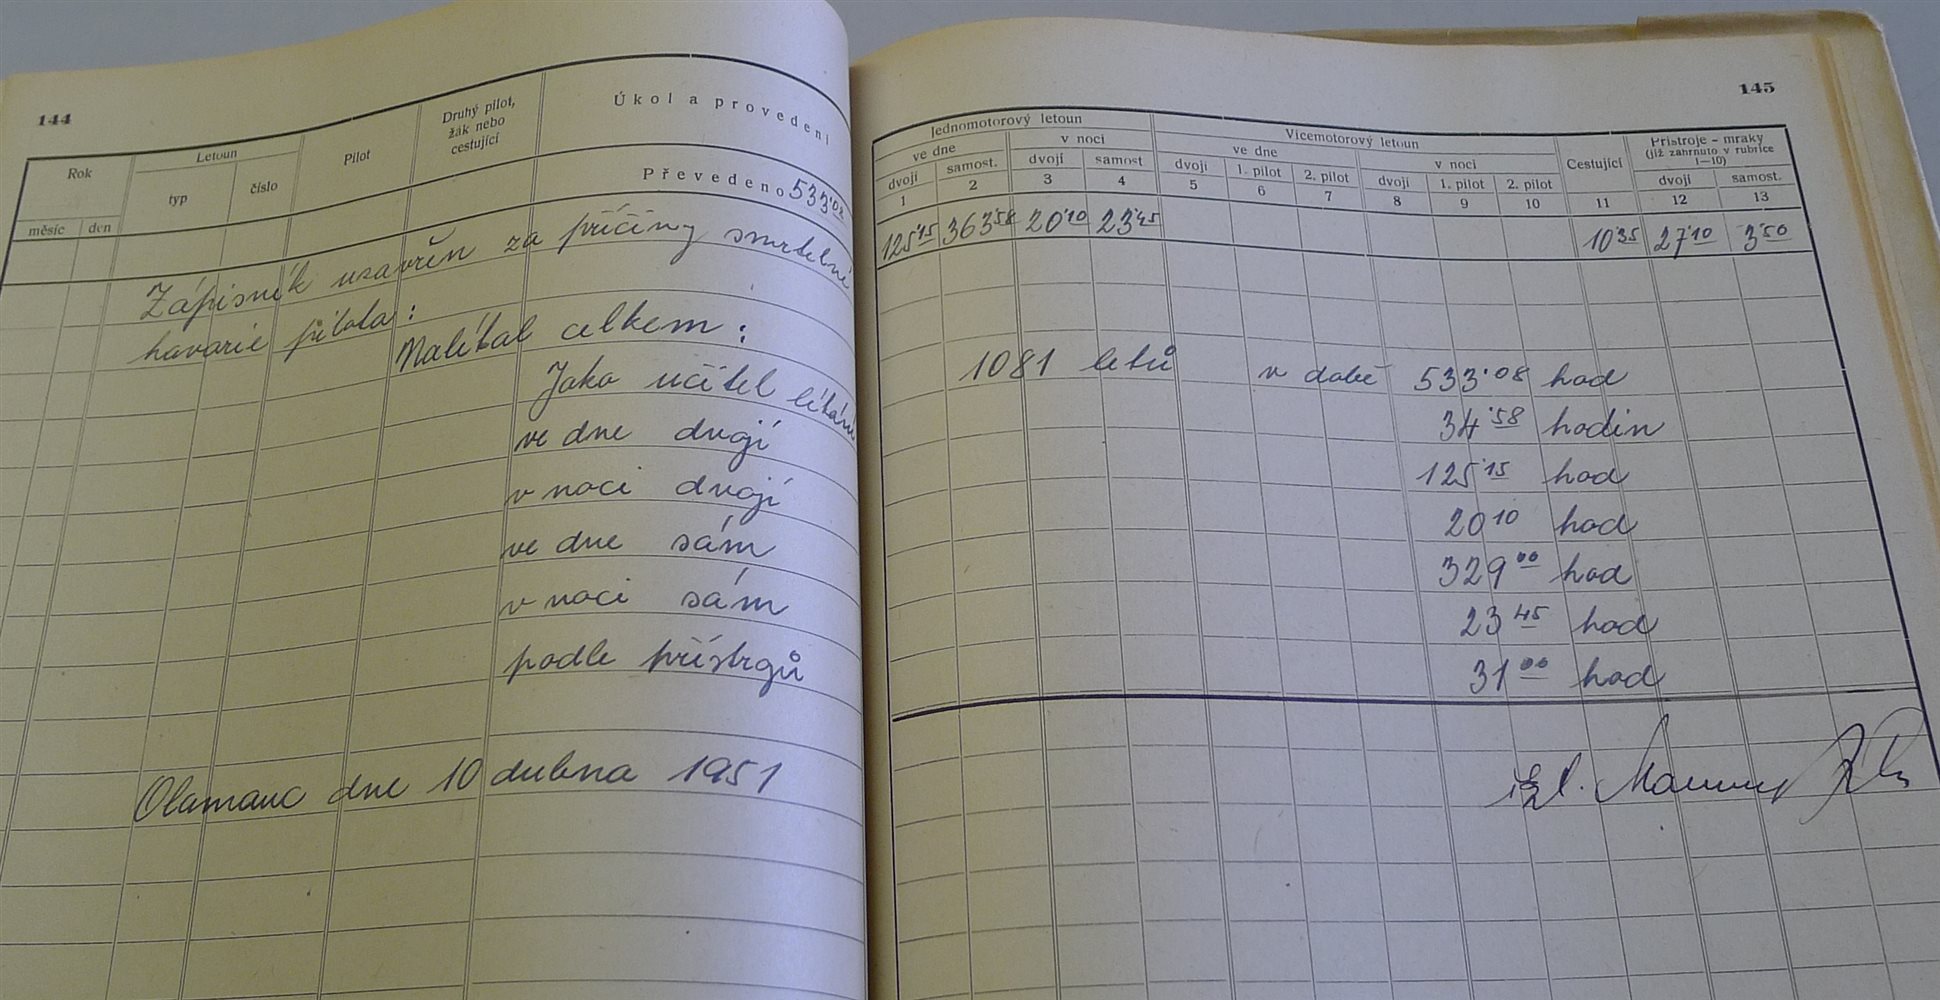 144
Rok
Letoun
Pilot
Druhý pilot,
žák nebo
cestující
Úkol a provedení
měsíc den
typ
číslo
Převedeno 533'08
Zápisník uzavřen za příčiny smrtelné
havarie pilota:
Nalétal celkem:
Jako učitel létání
ve dne dvojí
v noci dvojí
ve dne sám
v noci sám
podle přístrojů
Olomouc dne 10 dubna 1951
145
Jednomotorový letoun
Vícemotorový letoun
Cestující
Přístroje - mraky
(již zahrnuto v rubrice
1—10)
ve dne
v noci
ve dne
v noci
dvojí
samost.
dvojí
samost
dvojí
1. pilot
2. pilot
dvojí
1. pilot
2. pilot
dvojí
samost.
1 2 3 4 5 6 7 8 9 10 11 12 13
125'15 363'58 20'10 23'45 10'35 27'10 3'50
1081 letů v době 533'08 hod
34'58 hodin
125'15 hod
20 10 hod
329 00 hod
23 45 hod
31 00 hod